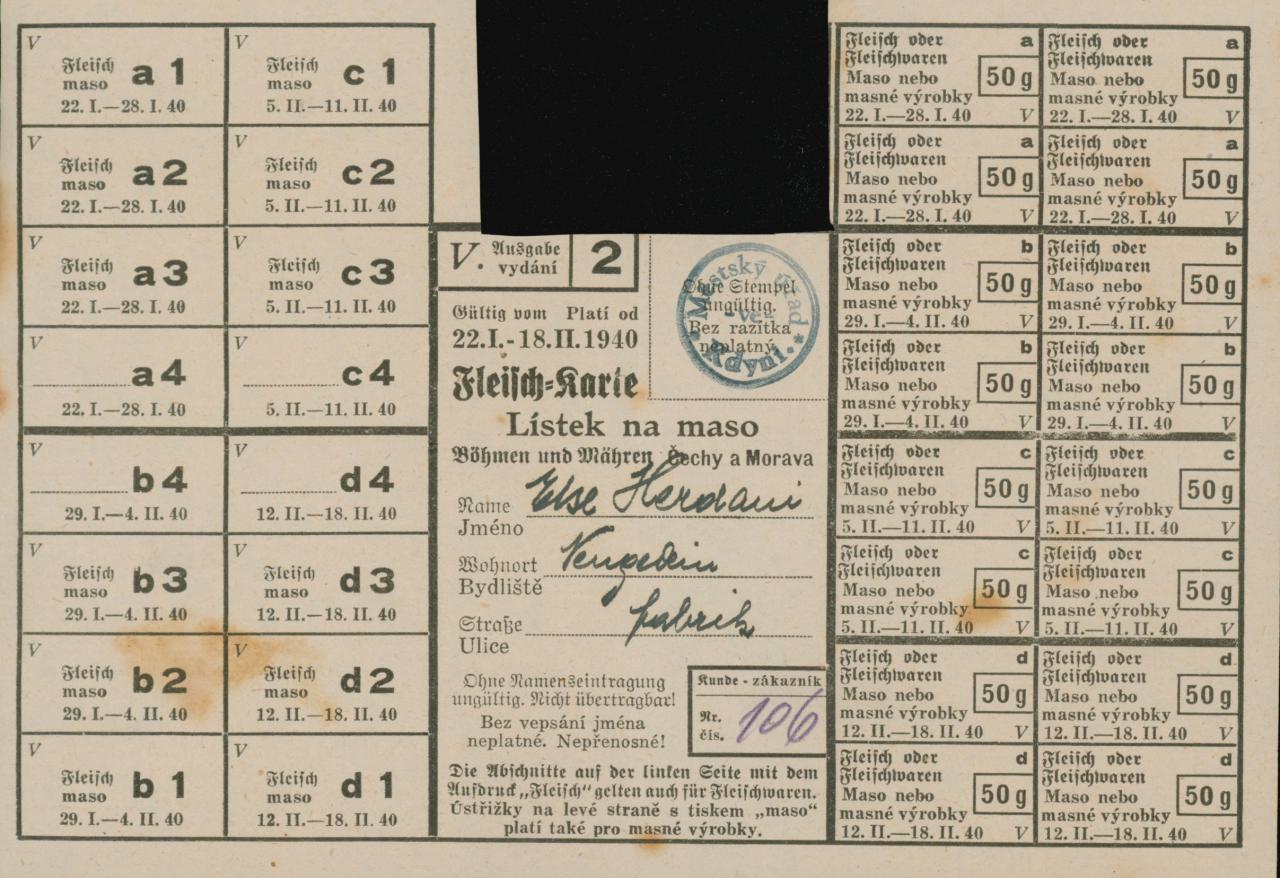 V
Fleisch
maso a 1
22. I.—28. I. 40
V
Fleisch
maso c 1
5. II.—11. II. 40
V
Fleisch
maso a 2
22. I.—28. I. 40
V
Fleisch
maso c 2
5. II.—11. II. 40
V
Fleisch
maso a 3
22. I.—28. I. 40
V
Fleisch
maso c 3
5. II.—11. II. 40
V
a 4
22. I.—28. I. 40
V
c 4
5. II.—11. II. 40
V
b 4
29. I.—4. II. 40
V
d 4
12. II.—18. II. 40
V
Fleisch
maso b 3
29. I.—4. II. 40
V
Fleisch
maso d 3
12. II.—18. II. 40
V
Fleisch
maso b 2
29. I.—4. II. 40
V
Fleisch
maso d 2
12. II.—18. II. 40
V
Fleisch
maso b 1
29. I.—4. II. 40
V
Fleisch
maso d 1
12. II.—18. II. 40
V. Ausgabe
vydání 2
Ohne Stempel
ungültig.
Bez razítka
neplatný.
Městský úřad
-ve-
Kdyni
Gültig vom Platí od
22.I.-18.II.1940
Fleisch-Karte
Lístek na maso
Böhmen und Mähren Čechy a Morava
Name Else Herdani
Jméno
Wohnort Neugedein
Bydliště
Straße fabrik
Ulice
Ohne Namenseintragung
ungültig. Nicht übertragbar!
Bez vepsání jména
neplatné. Nepřenosné!
Kunde - zákazník
Nr.
čís. 106
Die Abschnitte auf der linken Seite mit dem
Aufdruck „Fleisch" gelten auch für Fleischwaren.
Ústřižky na levé straně s tiskem „maso"
platí také pro masné výrobky.
Fleisch oder a
Fleischwaren
Maso nebo 50 g
masné výrobky
22. I.—28. I. 40 V
Fleisch oder a
Fleischwaren
Maso nebo 50 g
masné výrobky
22. I.—28. I. 40 V
Fleisch oder a
Fleischwaren
Maso nebo 50 g
masné výrobky
22. I.—28. I. 40 V
Fleisch oder a
Fleischwaren
Maso nebo 50 g
masné výrobky
22. I.—28. I. 40 V
Fleisch oder b
Fleischwaren
Maso nebo 50 g
masné výrobky
29. I.—4. II. 40 V
Fleisch oder b
Fleischwaren
Maso nebo 50 g
masné výrobky
29. I.—4. II. 40 V
Fleisch oder b
Fleischwaren
Maso nebo 50 g
masné výrobky
29. I.—4. II. 40 V
Fleisch oder b
Fleischwaren
Maso nebo 50 g
masné výrobky
29. I.—4. II. 40 V
Fleisch oder c
Fleischwaren
Maso nebo 50 g
masné výrobky
5. II.—11. II. 40 V
Fleisch oder c
Fleischwaren
Maso nebo 50 g
masné výrobky
5. II.—11. II. 40 V
Fleisch oder c
Fleischwaren
Maso nebo 50 g
masné výrobky
5. II.—11. II. 40 V
Fleisch oder c
Fleischwaren
Maso nebo 50 g
masné výrobky
5. II.—11. II. 40 V
Fleisch oder d
Fleischwaren
Maso nebo 50 g
masné výrobky
12. II.—18. II. 40 V
Fleisch oder d
Fleischwaren
Maso nebo 50 g
masné výrobky
12. II.—18. II. 40 V
Fleisch oder d
Fleischwaren
Maso nebo 50 g
masné výrobky
12. II.—18. II. 40 V
Fleisch oder d
Fleischwaren
Maso nebo 50 g
masné výrobky
12. II.—18. II. 40 V